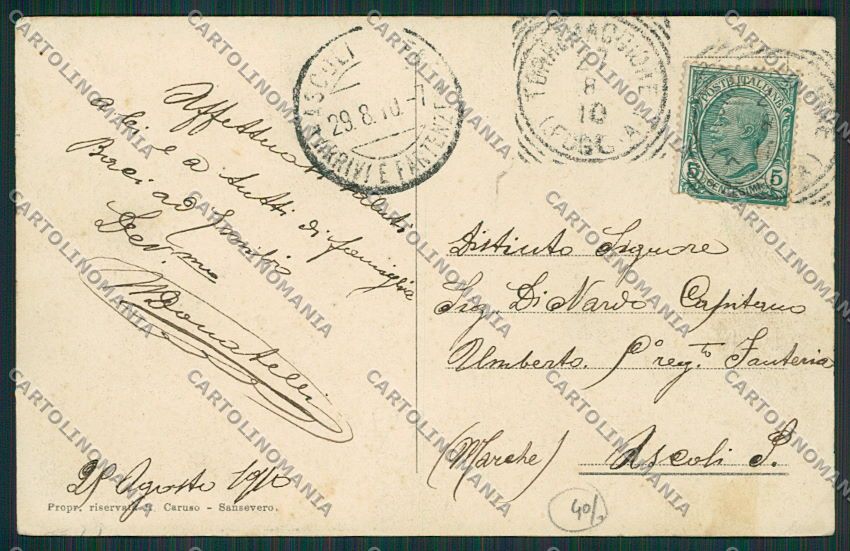 Affettuosi saluti
a lei e a tutti di famiglia
Baci ad
Dev.mo
MDonatelli
28 Agosto 1910
Propr. riservata A. Caruso - Sansevero.
ASCOLI
29.8.10.-7
ARRIVI E PARTENZE
TORREMAGGIORE
8
10
(FOGGIA)
POSTE ITALIANE
5 CENTESIMI 5
Distinto Signore
Sig. Di Nardo Capitano
Umberto. regto. Fanteria
(Marche) Ascoli P.
40/
CARTOLINOMANIA